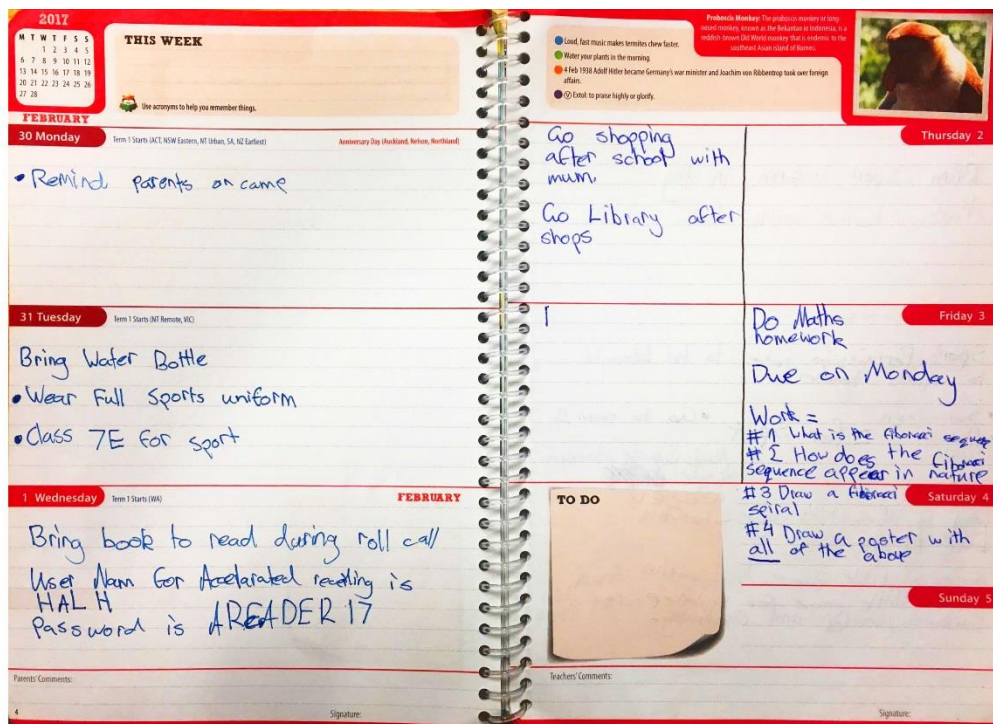 2017
M T W T F S S
1 2 3 4 5
6 7 8 9 10 11 12
13 14 15 16 17 18 19
20 21 22 23 24 25 26
27 28
FEBRUARY
THIS WEEK
Use acronyms to help you remember things.
30 Monday
Term 1 Starts (ACT, NSW Eastern, NT Urban, SA, NZ Earliest)
Anniversary Day (Auckland, Nelson, Northland)
• Remind parents on came
31 Tuesday
Term 1 Starts (NT Remote, VIC)
Bring Water Bottle
• Wear Full Sports uniform
• Class 7E for sport
1 Wednesday
Term 1 Starts (WA)
FEBRUARY
Bring book to read during roll call
User Nam for Accelarated reading is
HAL H
Password is AREADER 17
Parents' Comments:
4
Signature:
Loud, fast music makes termites chew faster.
Water your plants in the morning.
4 Feb 1938 Adolf Hitler became Germany's war minister and Joachim von Ribbentrop took over foreign
affairs.
Extol: to praise highly or glorify.
Proboscis Monkey: The proboscis monkey or long-
nosed monkey, known as the Bekantan in Indonesia, is a
reddish-brown Old World monkey that is endemic to the
southeast Asian island of Borneo.
Thursday 2
Go shopping
after school with
mum.
Go Library after
shops
Friday 3
Do Maths
homework
Due on Monday
Work =
#1 What is the fibonacci
#2 How does the
sequence appear in nature
Saturday 4
#3 Draw a fibonacci
spiral
#4 Draw a poster with
all of the above
TO DO
Sunday 5
Teachers' Comments:
Signature: